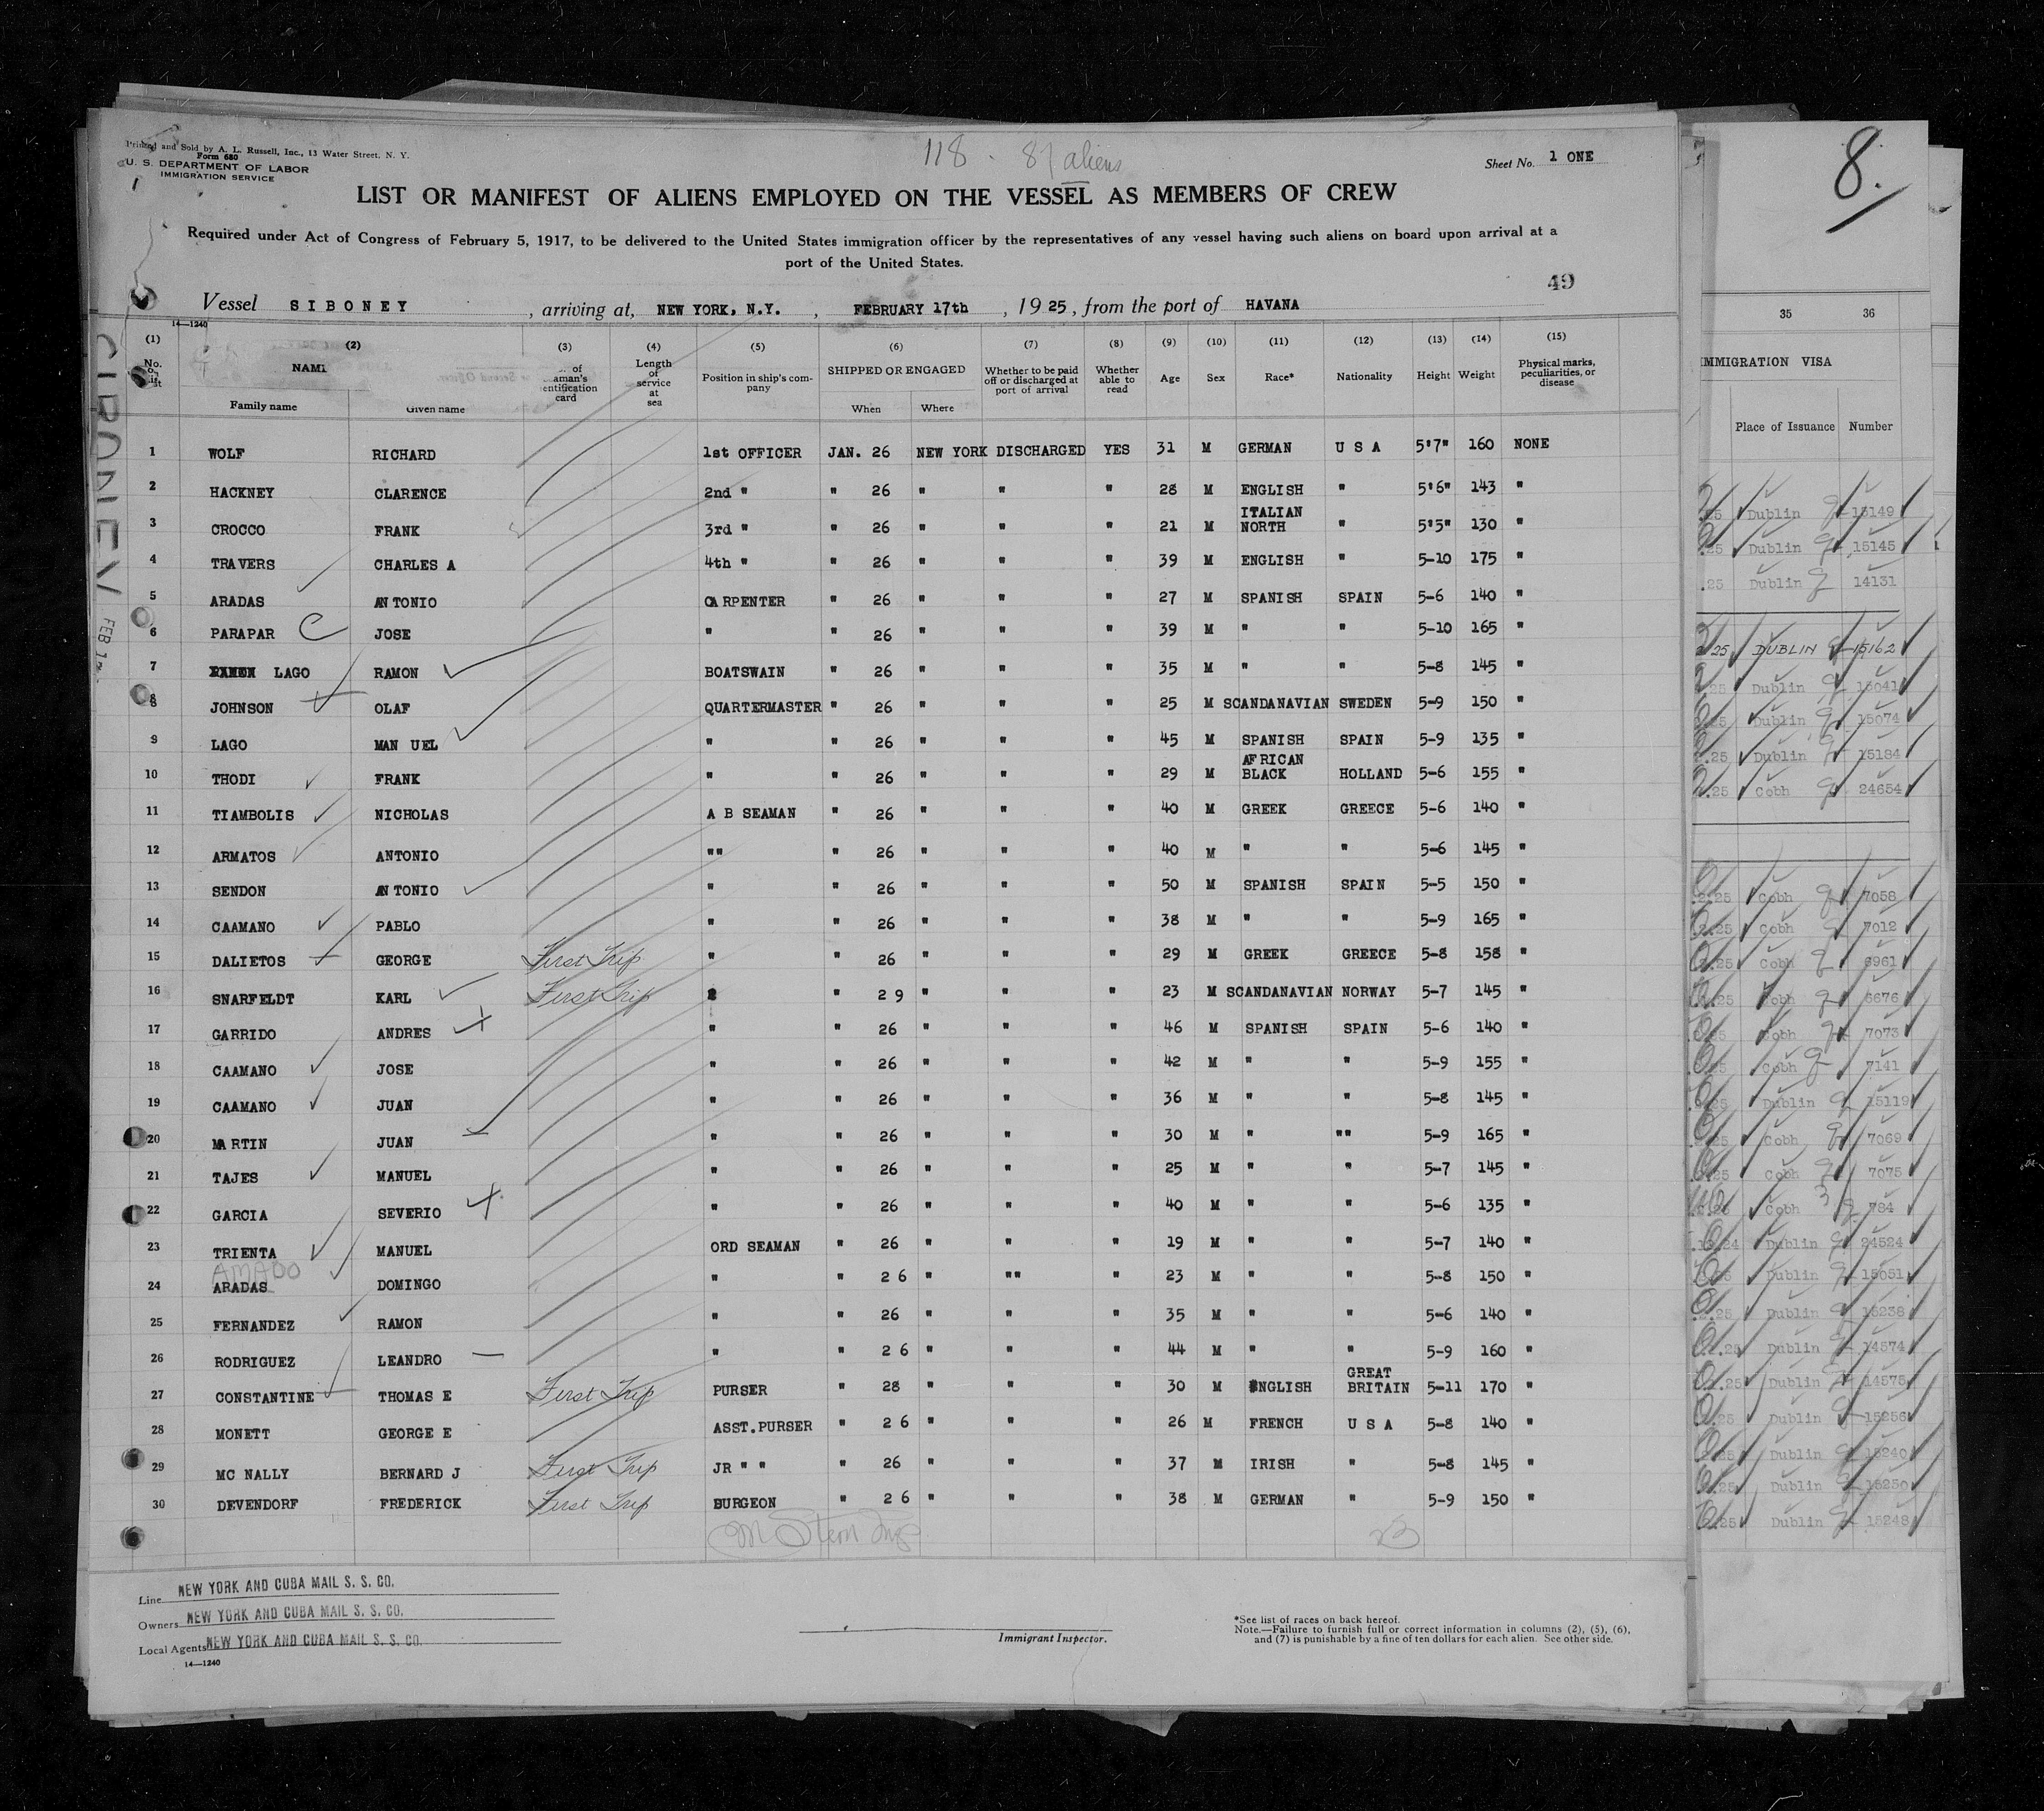 Printed and Sold by A. L. Russell, Inc., 13 Water Street, N. Y.
Form 680
U. S. DEPARTMENT OF LABOR
IMMIGRATION SERVICE
118 - 81 aliens
Sheet No. 1 ONE
8.
LIST OR MANIFEST OF ALIENS EMPLOYED ON THE VESSEL AS MEMBERS OF CREW
Required under Act of Congress of February 5, 1917, to be delivered to the United States immigration officer by the representatives of any vessel having such aliens on board upon arrival at a
port of the United States.
49
Vessel SIBONEY, arriving at, NEW YORK, N.Y., FEBRUARY 17th, 1925, from the port of HAVANA
14—1240
(1) (2) (3) (4) (5) (6) (7) (8) (9) (10) (11) (12) (13) (14) (15)
No. on list NAME Family name Given name of seaman's identification card Length of service at sea Position in ship's company SHIPPED OR ENGAGED When Where Whether to be paid off or discharged at port of arrival Whether able to read Age Sex Race* Nationality Height Weight Physical marks, peculiarities, or disease
SIBONEY FEB 17
1 WOLF RICHARD 1st OFFICER JAN. 26 NEW YORK DISCHARGED YES 31 M GERMAN U S A 5'7" 160 NONE
2 HACKNEY CLARENCE 2nd " " 26 " " " 28 M ENGLISH " 5'6" 143 "
3 CROCCO FRANK 3rd " " 26 " " " 21 M ITALIAN NORTH " 5'5" 130 "
4 TRAVERS CHARLES A 4th " " 26 " " " 39 M ENGLISH " 5-10 175 "
5 ARADAS ANTONIO CARPENTER " 26 " " " 27 M SPANISH SPAIN 5-6 140 "
6 PARAPAR C JOSE " " 26 " " " 39 M " " 5-10 165 "
7 LAGO RAMON BOATSWAIN " 26 " " " 35 M " " 5-8 145 "
8 JOHNSON OLAF QUARTERMASTER " 26 " " " 25 M SCANDANAVIAN SWEDEN 5-9 150 "
9 LAGO MAN UEL " " 26 " " " 45 M SPANISH SPAIN 5-9 135 "
10 THODI FRANK " " 26 " " " 29 M AFRICAN BLACK HOLLAND 5-6 155 "
11 TIAMBOLIS NICHOLAS A B SEAMAN " 26 " " " 40 M GREEK GREECE 5-6 140 "
12 ARMATOS ANTONIO "" " 26 " " " 40 M " " 5-6 145 "
13 SENDON ANTONIO " " 26 " " " 50 M SPANISH SPAIN 5-5 150 "
14 CAAMANO PABLO " " 26 " " " 38 M " " 5-9 165 "
15 DALIETOS GEORGE First Trip " " 26 " " " 29 M GREEK GREECE 5-8 158 "
16 SNARFELDT KARL First Trip " 2 9 " " " 23 M SCANDANAVIAN NORWAY 5-7 145 "
17 GARRIDO ANDRES " " 26 " " " 46 M SPANISH SPAIN 5-6 140 "
18 CAAMANO JOSE " " 26 " " " 42 M " " 5-9 155 "
19 CAAMANO JUAN " " 26 " " " 36 M " " 5-8 145 "
20 MARTIN JUAN " " 26 " " " 30 M " "" 5-9 165 "
21 TAJES MANUEL " " 26 " " " 25 M " " 5-7 145 "
22 GARCIA SEVERIO " " 26 " " " 40 M " " 5-6 135 "
23 TRIENTA MANUEL ORD SEAMAN " 26 " " " 19 M " " 5-7 140 "
AMADO
24 ARADAS DOMINGO " " 2 6 " "" " 23 M " " 5-8 150 "
25 FERNANDEZ RAMON " " 26 " " " 35 M " " 5-6 140 "
26 RODRIGUEZ LEANDRO " " 2 6 " " " 44 M " " 5-9 160 "
27 CONSTANTINE THOMAS E First Trip PURSER " 28 " " " 30 M ENGLISH GREAT BRITAIN 5-11 170 "
28 MONETT GEORGE E ASST.PURSER " 2 6 " " " 26 M FRENCH U S A 5-8 140 "
29 MC NALLY BERNARD J First Trip JR " " " 26 " " " 37 M IRISH " 5-8 145 "
30 DEVENDORF FREDERICK First Trip BURGEON " 2 6 " " " 38 M GERMAN " 5-9 150 "
Line NEW YORK AND CUBA MAIL S. S. CO.
Owners NEW YORK AND CUBA MAIL S. S. CO.
Local Agents NEW YORK AND CUBA MAIL S. S. CO.
14—1240
Immigrant Inspector.
*See list of races on back hereof.
Note.—Failure to furnish full or correct information in columns (2), (5), (6),
and (7) is punishable by a fine of ten dollars for each alien. See other side.
35 36
IMMIGRATION VISA
Place of Issuance Number
25 Dublin 15149
.25 Dublin 15145
.25 Dublin 14131
25 DUBLIN 15162
.25 Dublin 15041
.25 Dublin 15074
.25 Dublin 15184
.25 Cobh 24654
.25 Cobh 7058
.25 Cobh 7012
.25 Cobh 6961
.25 Cobh 6676
Cobh 7073
Cobh 7141
Dublin 15119
Cobh 7069
Cobh 7075
Cobh 784
24 Dublin 24524
Dublin 15051
.25 Dublin 15238
.25 Dublin 14574
.25 Dublin 14575
.25 Dublin 15256
.25 Dublin 15240
.25 Dublin 15250
.25 Dublin 15248